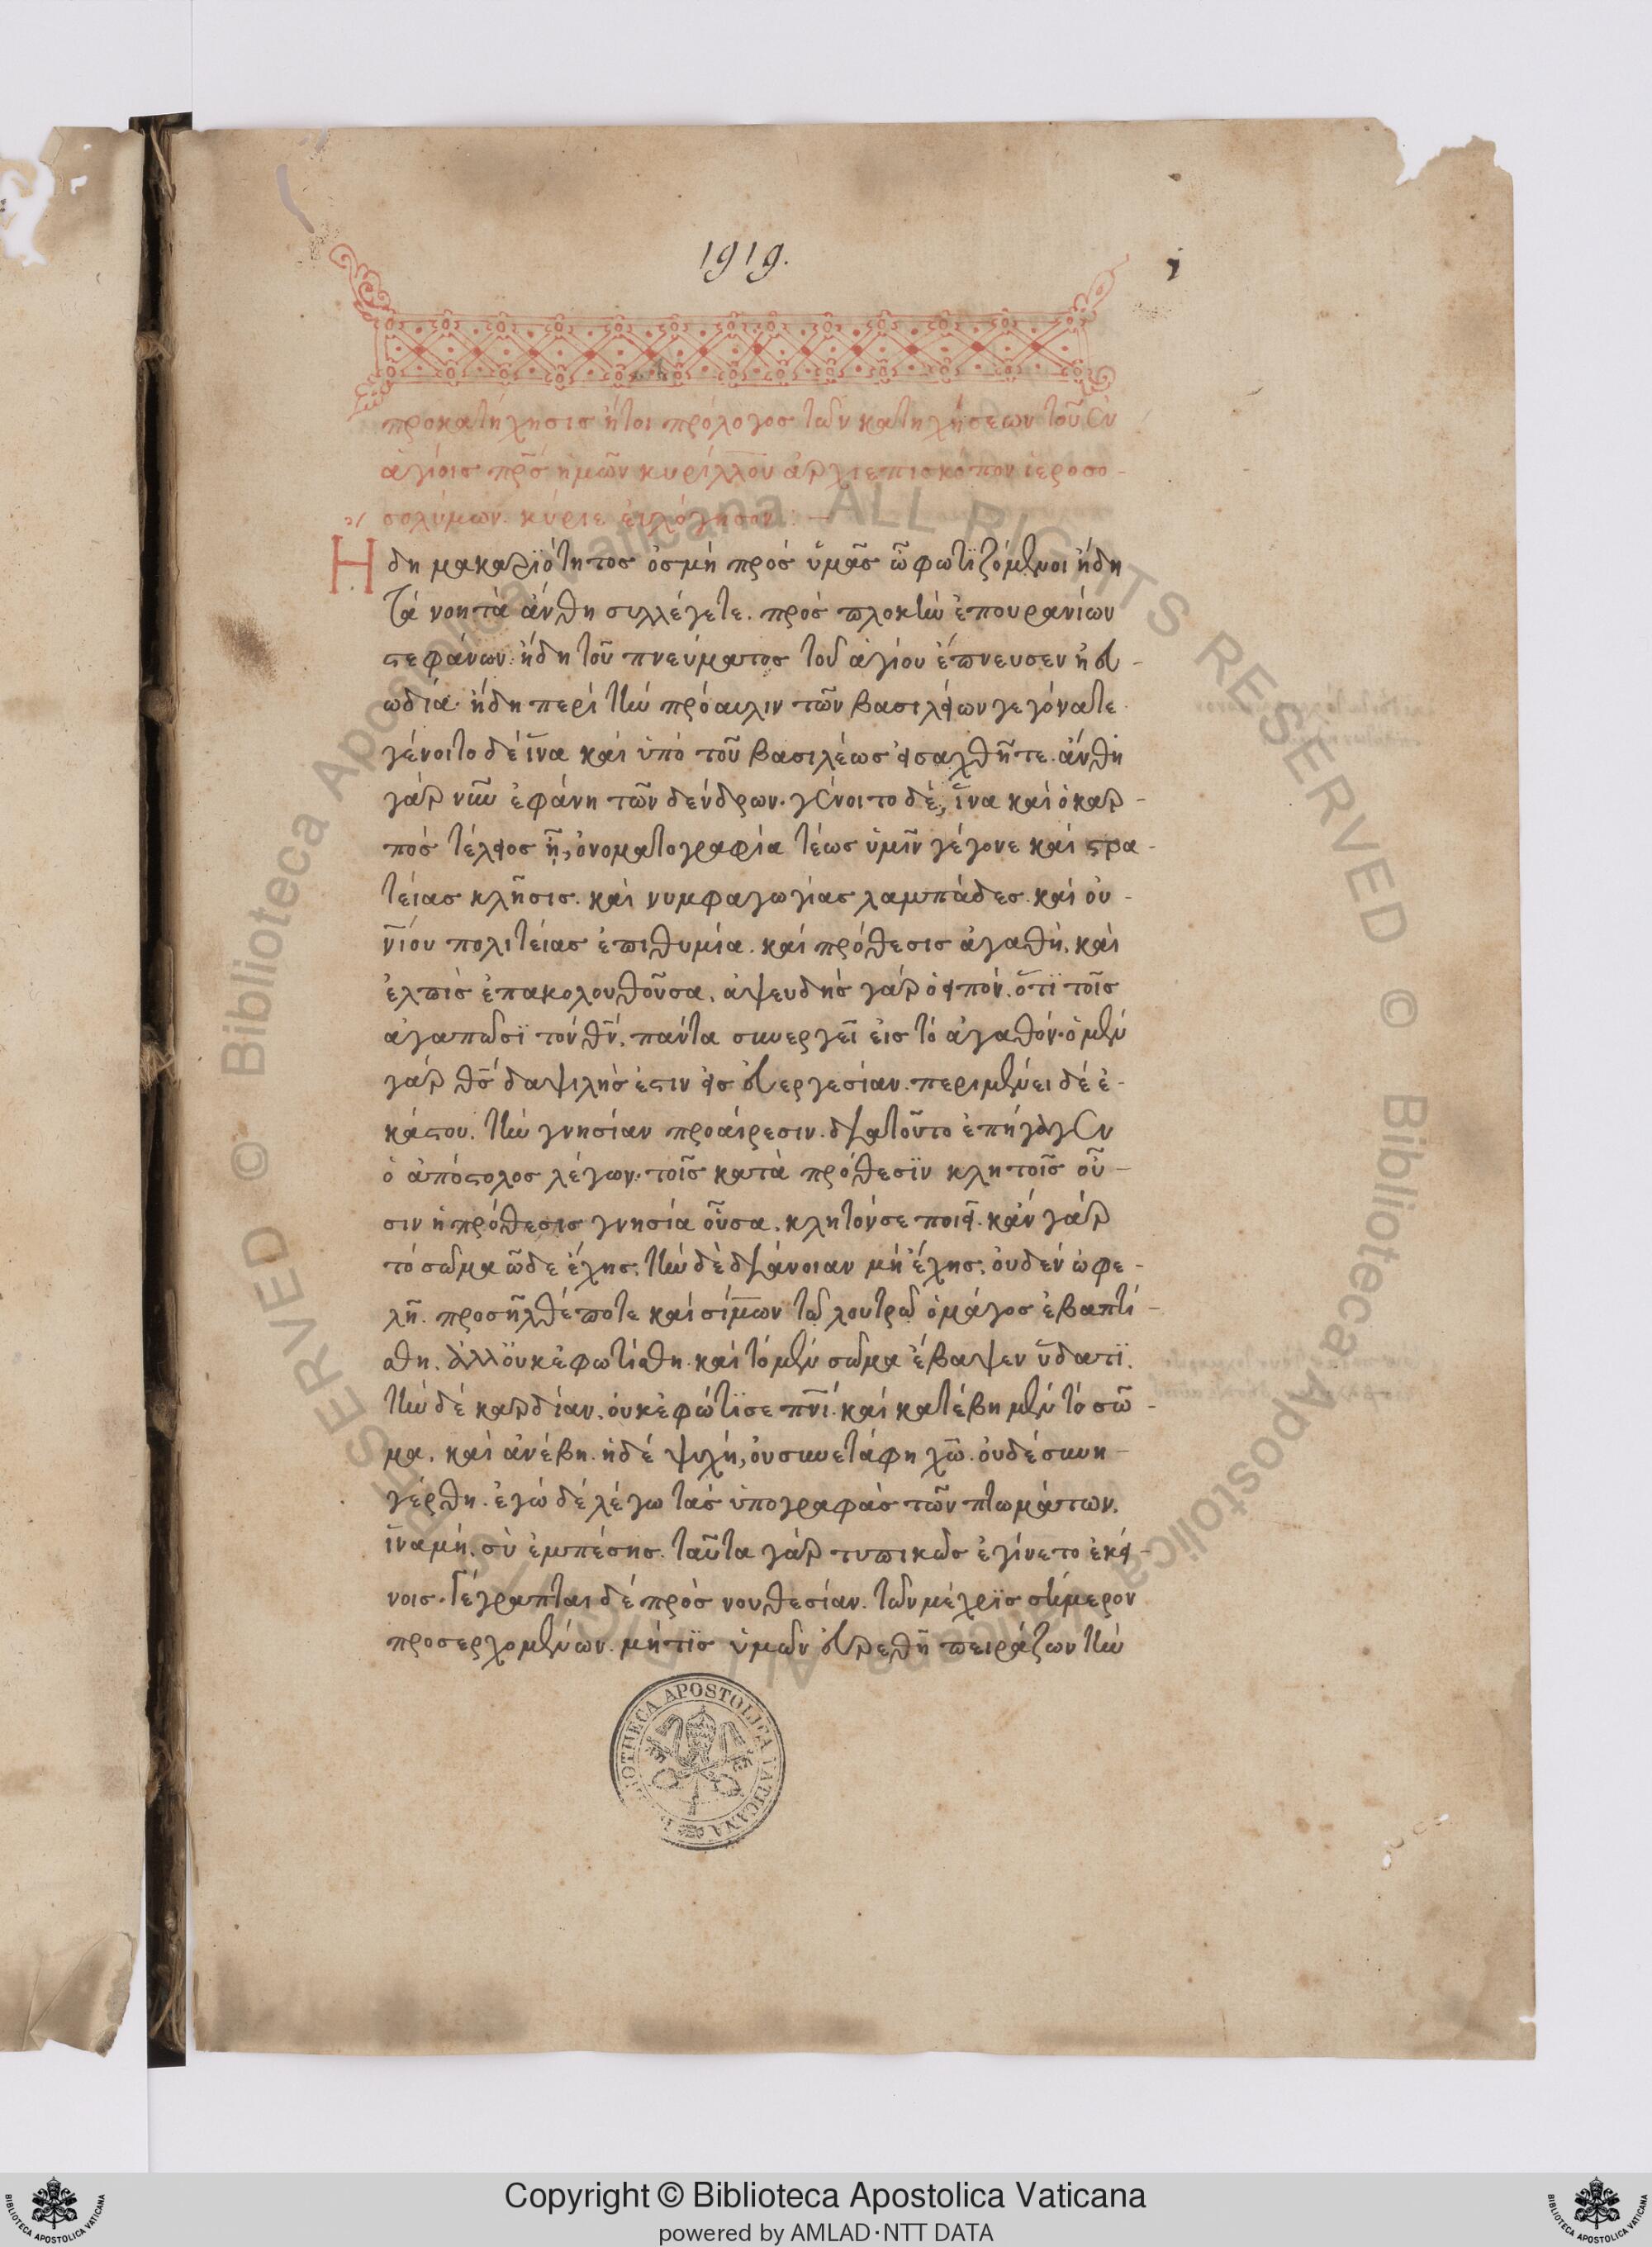 1919.
προκατήχησις ήτοι πρόλογος τῶν κατηχήσεων τοῦ ἐν
ἁγίοις πρ̅ς ἡμῶν κυρίλλου ἀρχιεπισκόπου ἱεροσο-
σολύμων. κύριε ἐυλόγησον :—
Ηδη μακαριότητος ὀσμή πρός ὑμᾶς ὦ φωτϊζόμενοι ἤδη
τά νοητὰ ἄνθη συλλέγετε. πρός πλοκὴν ἐπουρανίων
στεφάνων. ἤδη τοῦ πνεύματος τοῦ ἁγίου ἔπνευσεν ἡ εὐ-
ωδία. ἤδη περί τὴν πρόαυλιν τῶν βασιλείων γεγόνατε.
γένοιτο δέ ἵνα καί ὑπό τοῦ βασιλέως εἰσαχθῆτε. ἄνθη
γάρ νῦν ἐφάνη τῶν δένδρων. γένοιτο δέ, ἵνα καί ὁ καρ-
πός τέλειος ᾖ, ὀνοματογραφία τέως ὑμῖν γέγονε καί στρα-
τείας κλῆσις. καί νυμφαγωγίας λαμπάδες. καί οὐ-
νίου πολιτείας ἐπιθυμία. καί πρόθεσις ἀγαθή. καί
ἐλπίς ἐπακολουθοῦσα. ἀψευδής γάρ ὁ εἰπόν. ὅτϊ τοῖς
ἀγαπῶσϊ τόν θν̅. πάντα συνεργεῖ εἰς τό ἀγαθόν. ὁ μὲν
γάρ θς̅ δαψιλής ἐστιν εἰς εὐεργεσίαν. περιμένει δέ ἑ-
κάστου. τὴν γνησίαν προαίρεσιν. διατοῦτο ἐπήγαγεν
ὁ ἀπόστολος λέγων. τοῖς κατὰ πρόθεσϊν κλητοῖς οὖ-
σιν ἡ πρόθεσις γνησία οὖσα. κλητόνσε ποιεῖ. κἄν γάρ
τό σῶμα ὧδε ἔχης. τὴν δὲ διάνοιαν μή ἔχης. οὐδέν ὠφε-
λῆ. προσῆλθέ ποτε καί σίμων τῶ λουτρῶ ὁ μάγος ἐβαπτί-
σθη. ἀλλ' οὐκ ἐφωτίσθη. καί τό μὲν σῶμα ἔβαψεν ὕδατϊ.
τὴν δέ καρδίαν. οὐκ ἐφώτϊσε πν̅ι. καί κατέβη μὲν τό σῶ-
μα. καί ἀνέβη. ἡ δέ ψυχή, οὐ συνετάφη χω̅. οὐδέ συνη-
γέρθη. ἐγώ δέ λέγω τάς ὑπογραφάς τῶν πτωμάτων.
ἵνα μή. σὺ ἐμπέσης. ταῦτα γάρ τυπικῶς ἐγίνετο ἐκεί-
νοις. Γέγραπται δέ πρός νουθεσίαν. τῶν μέχρϊς σήμερον
προσερχομένων. μή τϊς ὑμῶν εὑρεθῆ πειράζων τὴν
BIBLIOTHECA APOSTOLICA VATICANA
© Biblioteca Apostolica Vaticana ALL RIGHTS RESERVED
© Biblioteca Apostolica Vaticana ALL RIGHTS RESERVED
Copyright © Biblioteca Apostolica Vaticana
powered by AMLAD·NTT DATA
BIBLIOTECA APOSTOLICA VATICANA
BIBLIOTECA APOSTOLICA VATICANA